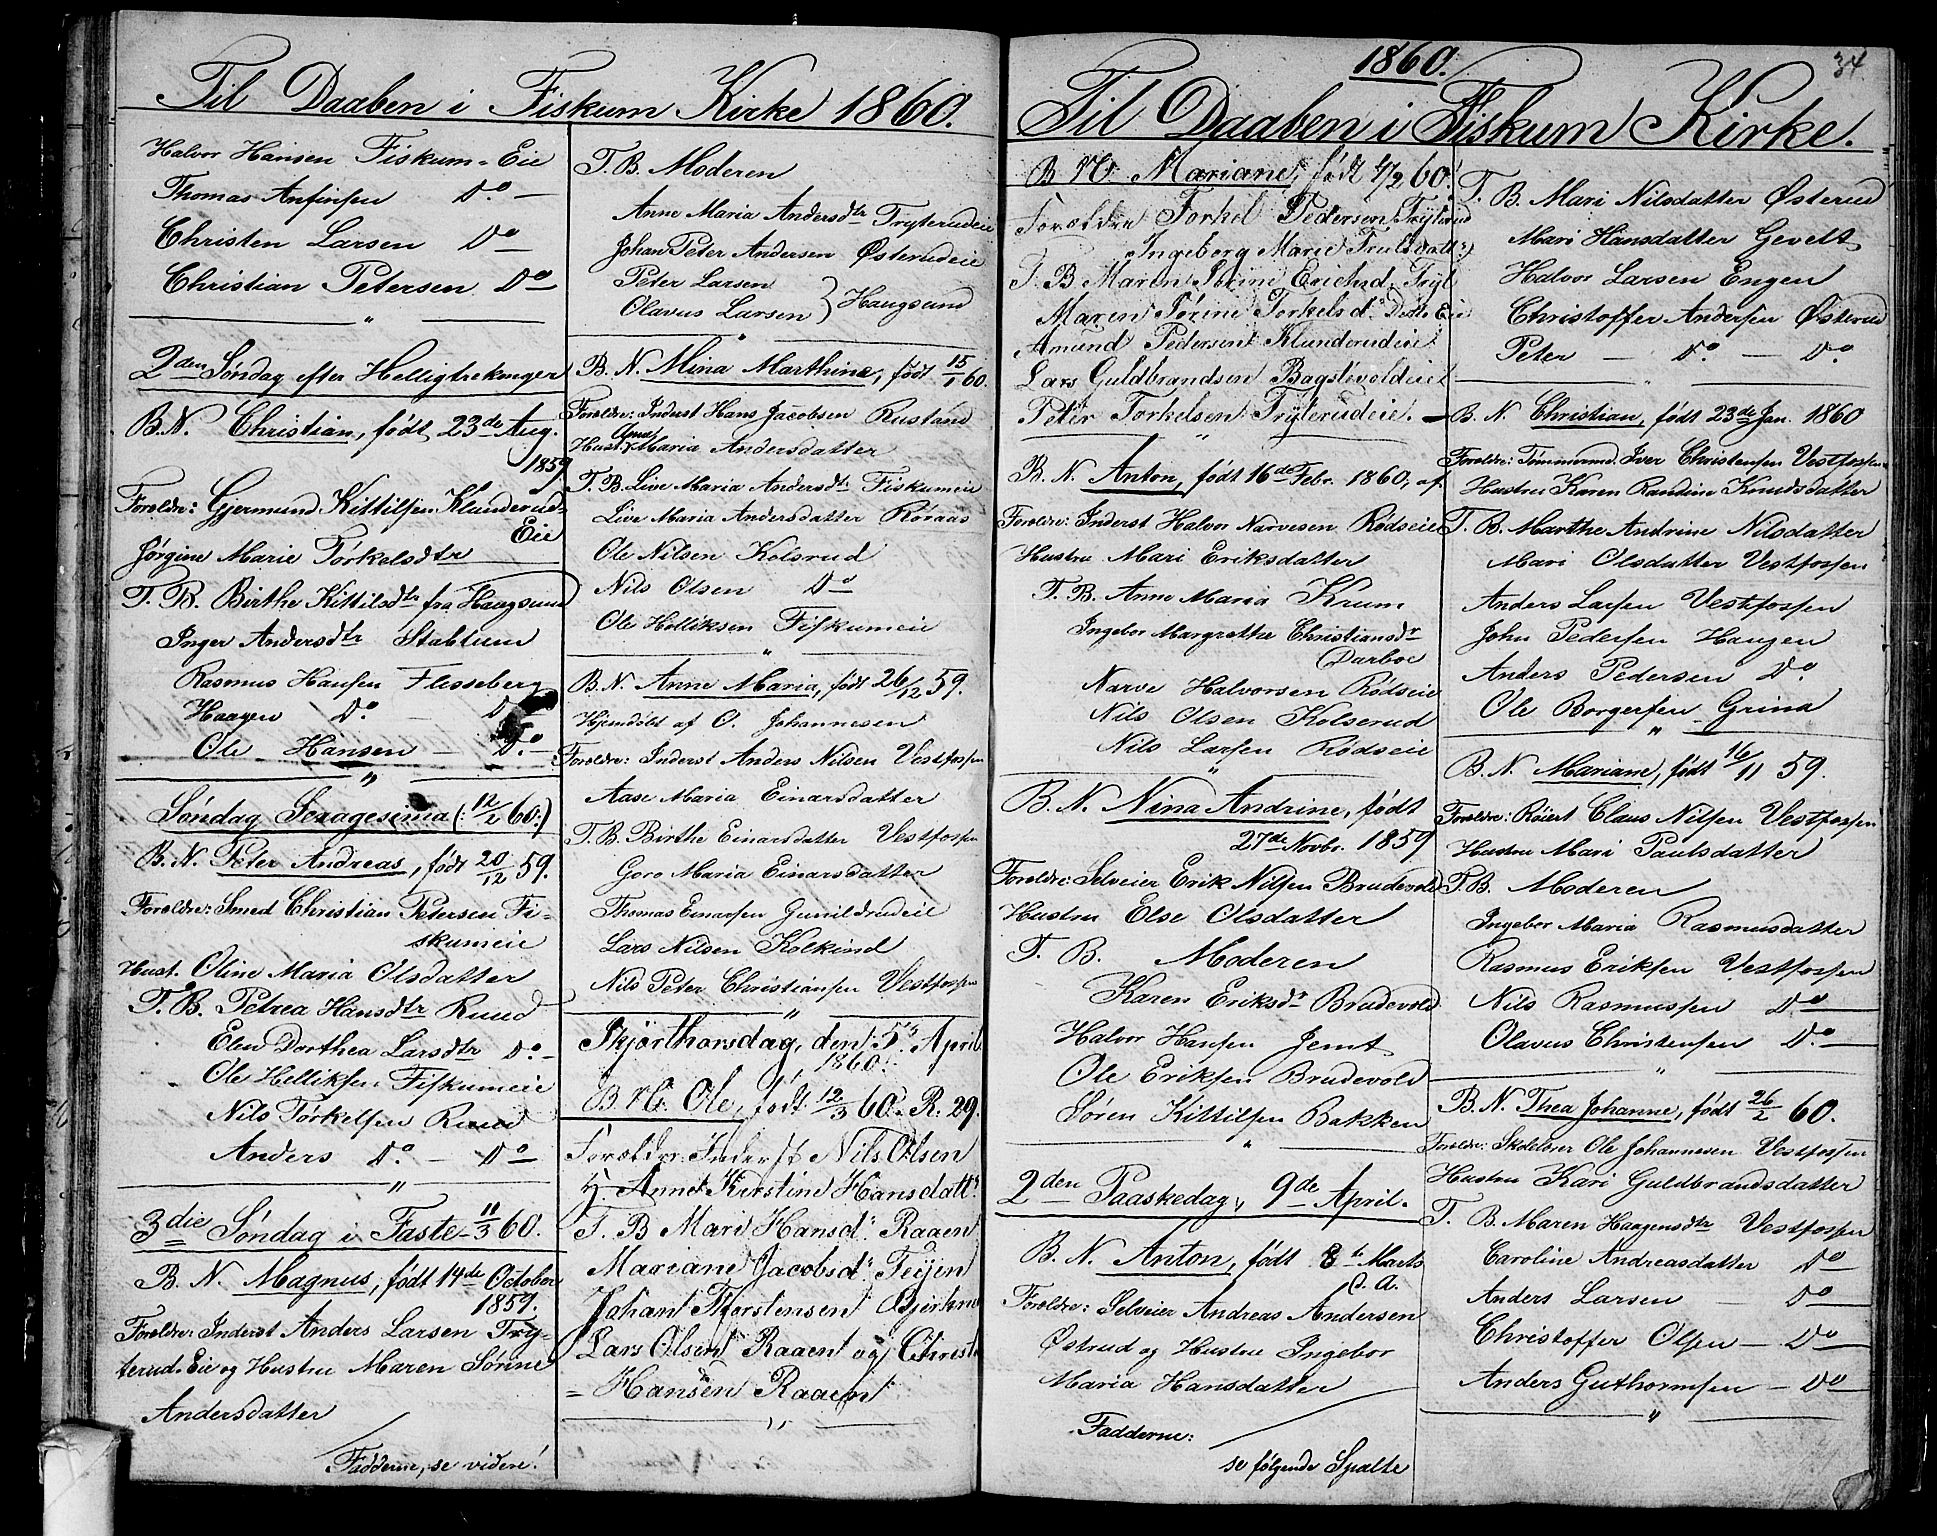 Til Daaben i Fiskum Kirke 1860.
Halvor Hansen Fiskum-Eie
Thomas Anfinsen Do. —
Christen Larsen Do
Christian Petersen Do
"
2den Søndag efter Helligtrekonger
B.N. Christian, født 23de Aug.
1859
Foreldre: Gjermund Kittilsen Klunderud-
Eie
Jørgine Marie Torkelsdtr
T. B. Birthe Kittilsdtr fra Haugsund
Inger Andersdtr Stablum
Rasmus Hansen Flesseberg
Haagen Do. —
Ole Hansen — Do. —
"
Søndag Sexagesima (: 12/2 60:)
B.N. Peter Andreas, født 20/12 59.
Foreldre: Smed Christian Petersen Fi-
skumeie
Hust. Oline Maria Olsdatter
T. B. Petrea Hansdtr Ruud
Elen Dorthea Larsdtr Do. —
Ole Helliksen Fiskumeie
Nils Torkelsen Ruud
Anders Do. — Do
"
3die Søndag i Faste 11/3 60.
B. N. Magnus, født 14de October
1859.
Foreldre: Inderst Anders Larsen Try-
terud-Eie og Hustru Maren Sørine
Andersdatter
Fadderne, se videre!
T. B. Moderen
Anne Maria Andersdtr Tryterudeie
Johan Peter Andersen Østerudeie
Peter Larsen
Olavus Larsen } Haugsund
"
B. N. Mina Marthine, født 15/1 60.
Foreldre: Inderst Hans Jacobsen Rustand
Hust. Anne Maria Andersdatter
T. B. Live Maria Andersdtr Fiskumeie
Live Maria Andersdatter Røraas
Ole Nilsen Kolsrud
Nils Olsen Do
Ole Helliksen Fiskumeie
"
B. N. Anne Maria, født 26/12 59.
Hjemdøbt af O. Johannesen
Foreldre: Inderst Anders Nilsen Vestfossen
Aase Maria Einarsdatter
T. B. Birthe Einarsdatter Vestfossen
Goro Maria Einarsdatter
Thomas Einarsen Gunildrudeie
Lars Nilsen Kolkind
Nils Peter Christiansen Vestfossen
"
Skjørthorsdag, den 5. April
1860.
B. N. Ole, født 12/3 60. R. 29.
Foreldre: Inderst Nils Olsen
H. Anne Kirstine Hansdatt:
T. B Mari Hansd: Raaen
Mariane Jacobsd: Teijen
Johan Thorstensen
Lars Olsen Raaen og
Hansen Raaen
"
1860.
34
Til Daaben i Fiskum Kirke.
B N. Mariane, født 4/2 60.
Foreldre Torkel Pedersen Tryterud
Ingeborg Marie Trulsdatt:
T. B Maren Sørine Erichsd. Tryt
Maren Sørine Torkelsd: Ditto Eie
Amund Pedersen Klunderudeie
Lars Guldbrandsen Bagstevoldeie
Peter Torkelsen Tryterudeie. —
"
B. N. Anton, født 16de Febr. 1860, af
Foreldre: Inderst Halvor Narvesen Rødseie
Hustru Mari Eriksdatter
T. B. Anne Maria Krum
Ingebor Margrethe Christiansdr
Darboe
Narve Halvorsen Rødseie
Nils Olsen Kolserud
Nils Larsen Rødseie
"
B. N. Nina Andrine, født
27de Novbr. 1859
Foreldre: Selveier Erik Nilsen Brudevold
Hustru Else Olsdatter
T. B. Moderen
Karen Eriksdr Brudevold
Halvor Hansen Jemt
Ole Eriksen Brudevold
Søren Kittilsen Bakken
"
2den Paaskedag, 9de April.
B. N. Anton, født 8de Marts
d. A.
Foreldre: Selveier Andreas Andersen
Østrud og Hustru Ingebor
Maria Hansdatter
Fadderne:
se følgende Spalte
T. B. Mari Nilsdatter Østerud
Mari Hansdatter Gevelt
Halvor Larsen Engen
Christoffer Andersen Østerud
Peter — Do. — Do.
"
B. N. Christian, født 23de Jan. 1860
Foreldre: Tømmermd. Iver Christensen Vestfossen
Hustru Karen Randine Knudsdatter
T. B. Marthe Andrine Nilsdatter
Mari Olsdatter Vestfossen
Anders Larsen Vestfossen
John Pedersen Haugen
Anders Pedersen Do.
Ole Borgersen Grina
"
B. N. Mariane, født 16/11 59.
Foreldre: Røiert Claus Nilsen Vestfossen
Hustru Mari Paulsdatter
T. B. Moderen
Ingebor Maria Rasmusdatter
Rasmus Eriksen Vestfossen
Nils Rasmussen Do
Olavus Christensen Do.
"
B. N. Thea Johanne, født 26/2 60.
Foreldre: Skolelærer Ole Johannesen Vestfossen
Hustru Kari Guldbrandsdatter
T. B. Maren Haagensdtr Vestfossen
Caroline Andreasdatter Do
Anders Larsen — Do
Christoffer Olsen — Do
Anders Guthormsen — Do
"